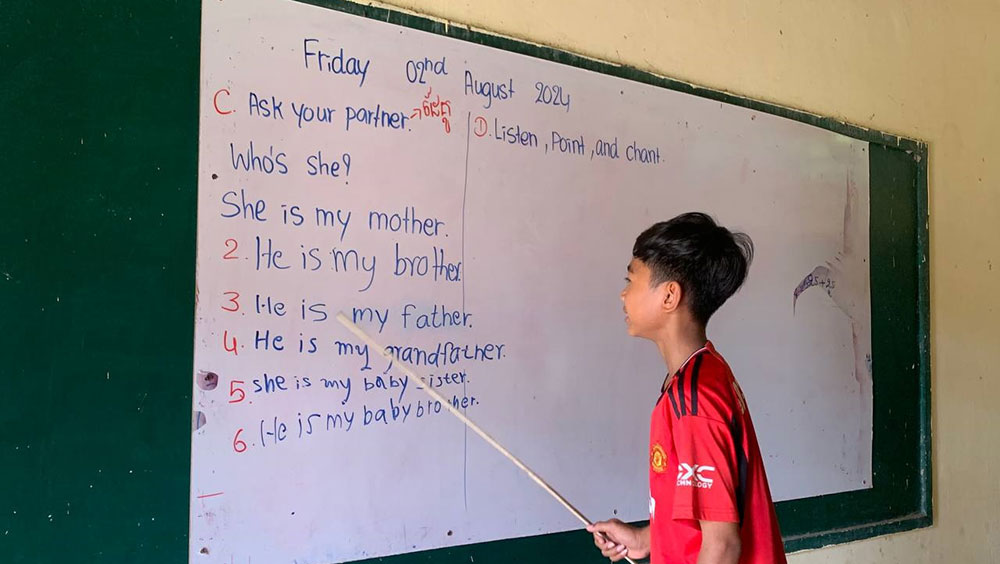 Friday 02nd August 2024
C. Ask your partner.→
Who's she?
She is my mother.
2. He is my brother.
3. He is my father.
4. He is my grandfather.
5. she is my baby sister.
6. He is my baby brother.
D. Listen, Point, and chant.
DXC
CHNOLOGY